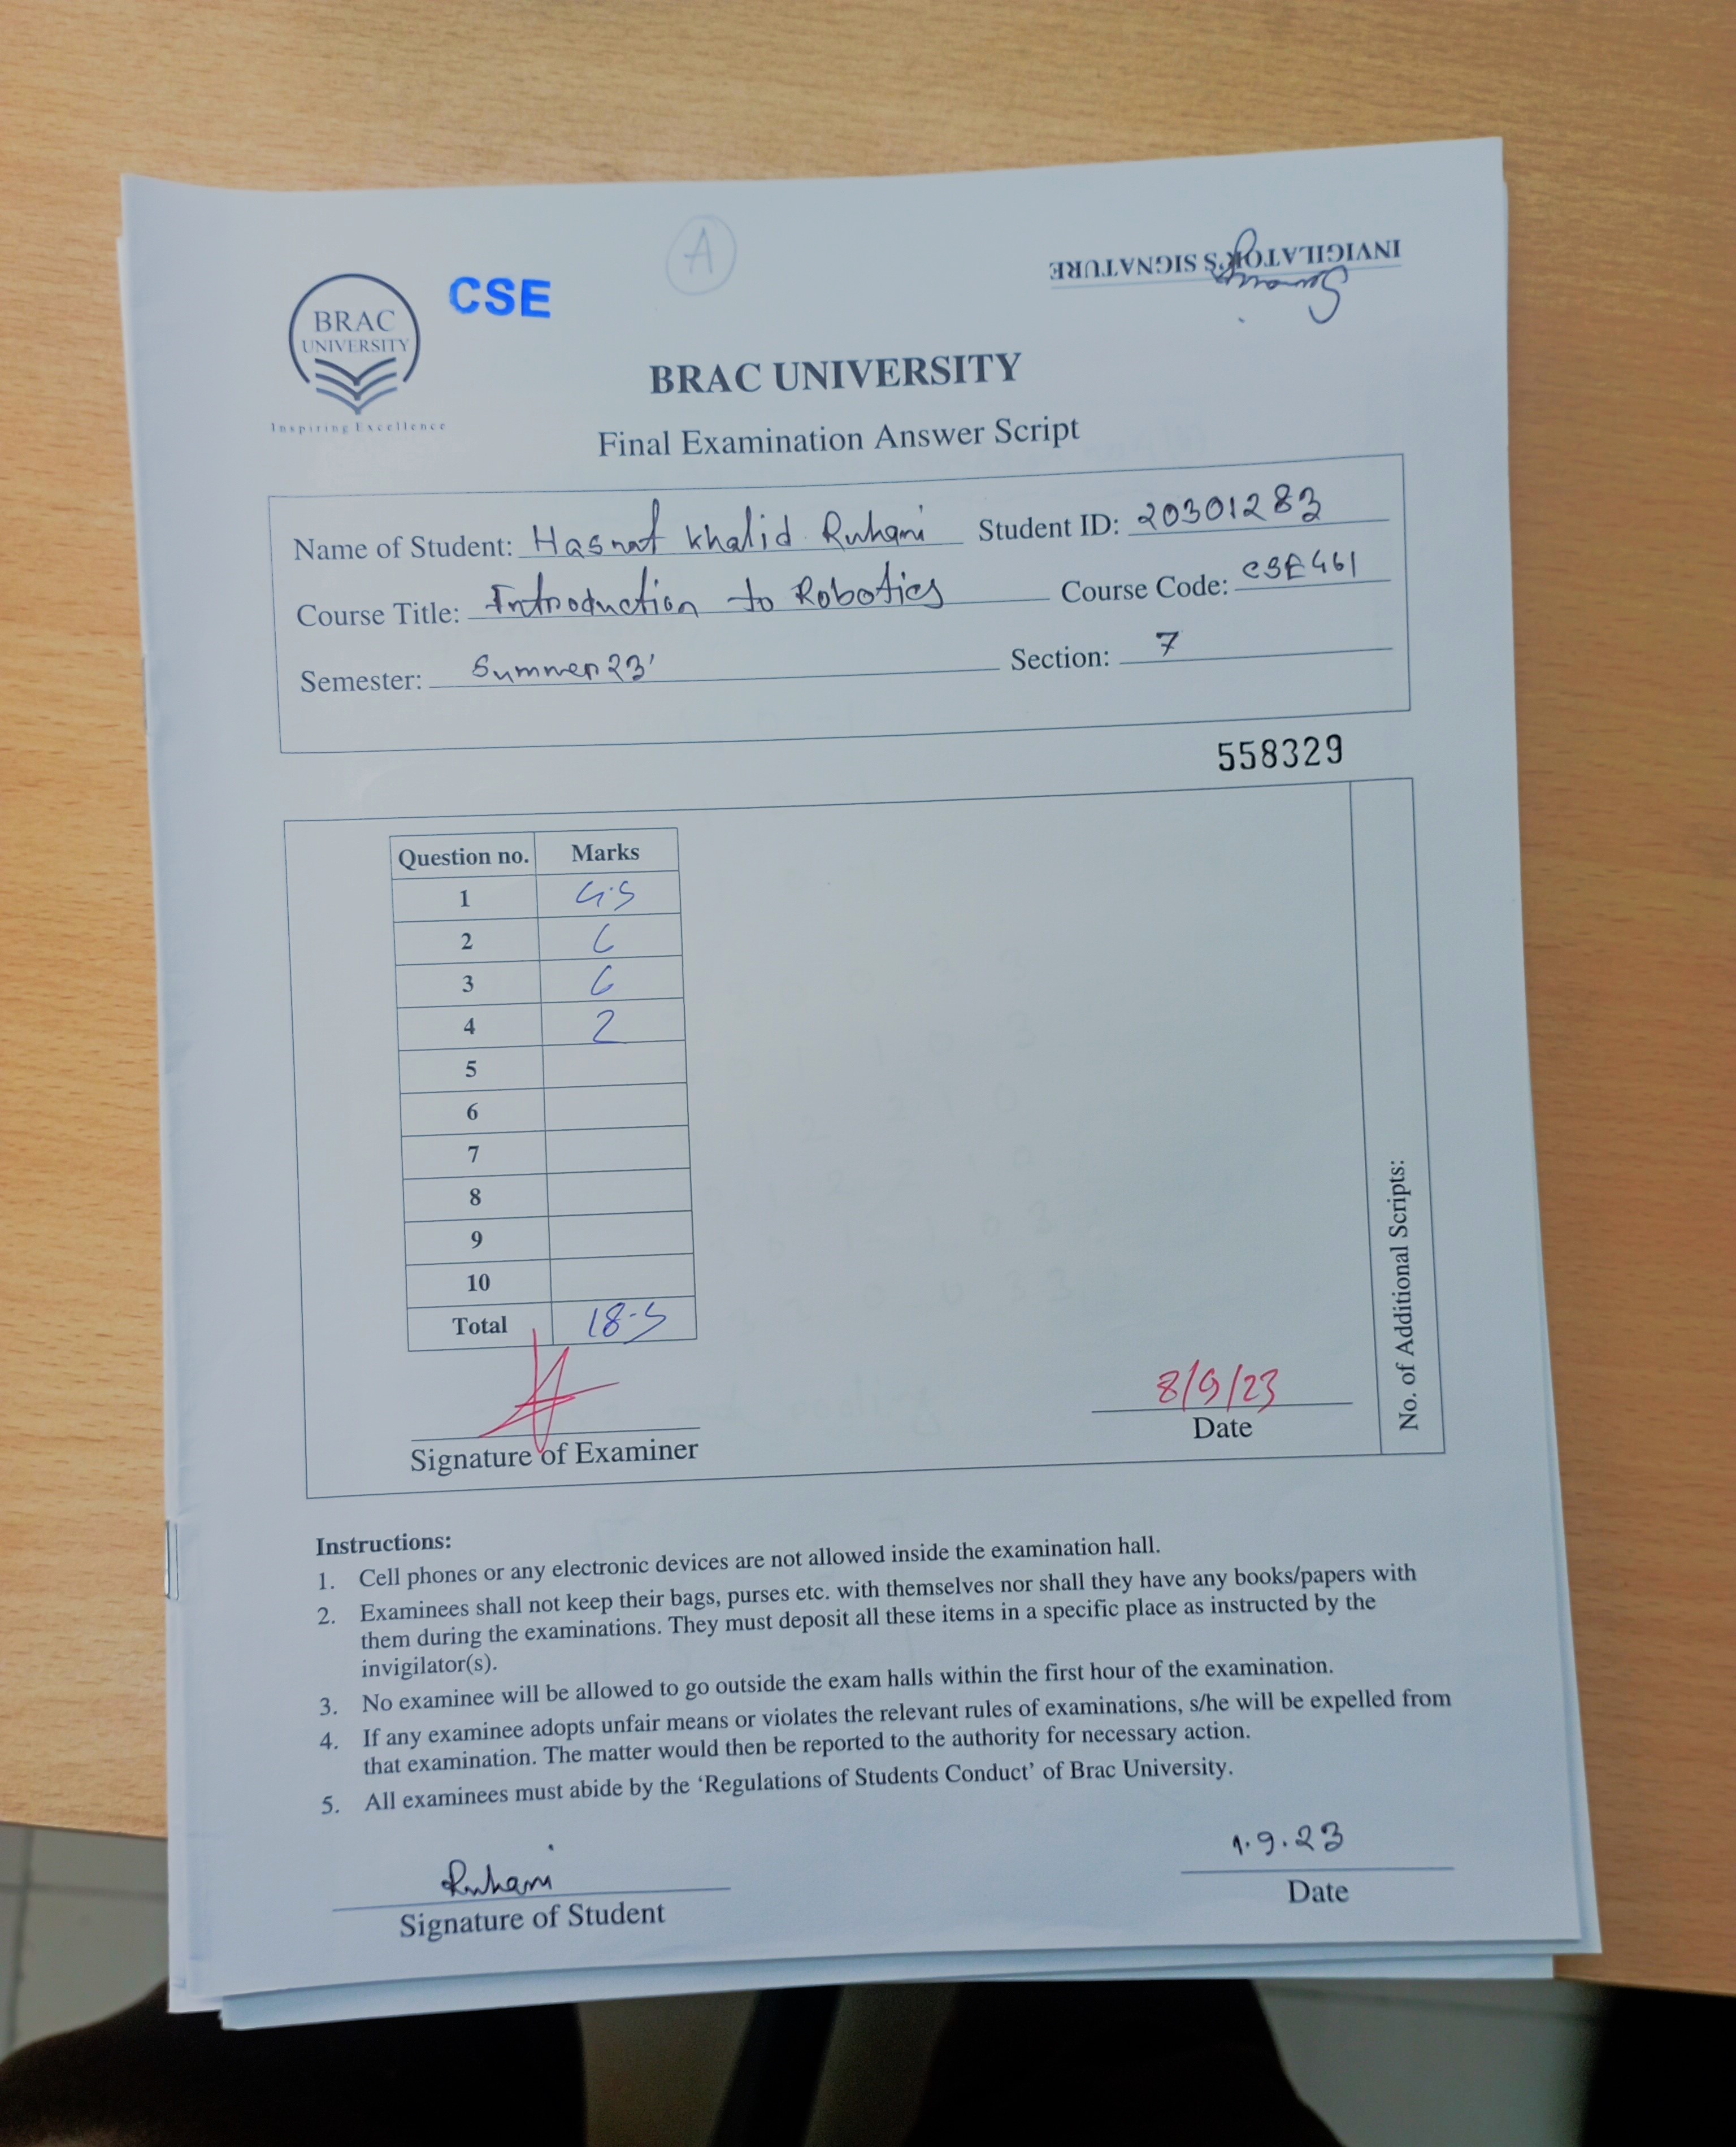 A
INVIGILATOR'S SIGNATURE
BRAC
UNIVERSITY
Inspiring Excellence
CSE
BRAC UNIVERSITY
Final Examination Answer Script
Name of Student: Hasnat Khalid Ruhani Student ID: 20301283
Course Title: Introduction to Robotics Course Code: CSE461
Semester: Summer 23' Section: 7
558329
Question no. Marks
1 4.5
2 6
3 6
4 2
5
6
7
8
9
10
Total 18.5
No. of Additional Scripts:
8/9/23
Signature of Examiner Date
Instructions:
1. Cell phones or any electronic devices are not allowed inside the examination hall.
2. Examinees shall not keep their bags, purses etc. with themselves nor shall they have any books/papers with
them during the examinations. They must deposit all these items in a specific place as instructed by the
invigilator(s).
3. No examinee will be allowed to go outside the exam halls within the first hour of the examination.
4. If any examinee adopts unfair means or violates the relevant rules of examinations, s/he will be expelled from
that examination. The matter would then be reported to the authority for necessary action.
5. All examinees must abide by the ‘Regulations of Students Conduct’ of Brac University.
Ruhani 1.9.23
Signature of Student Date